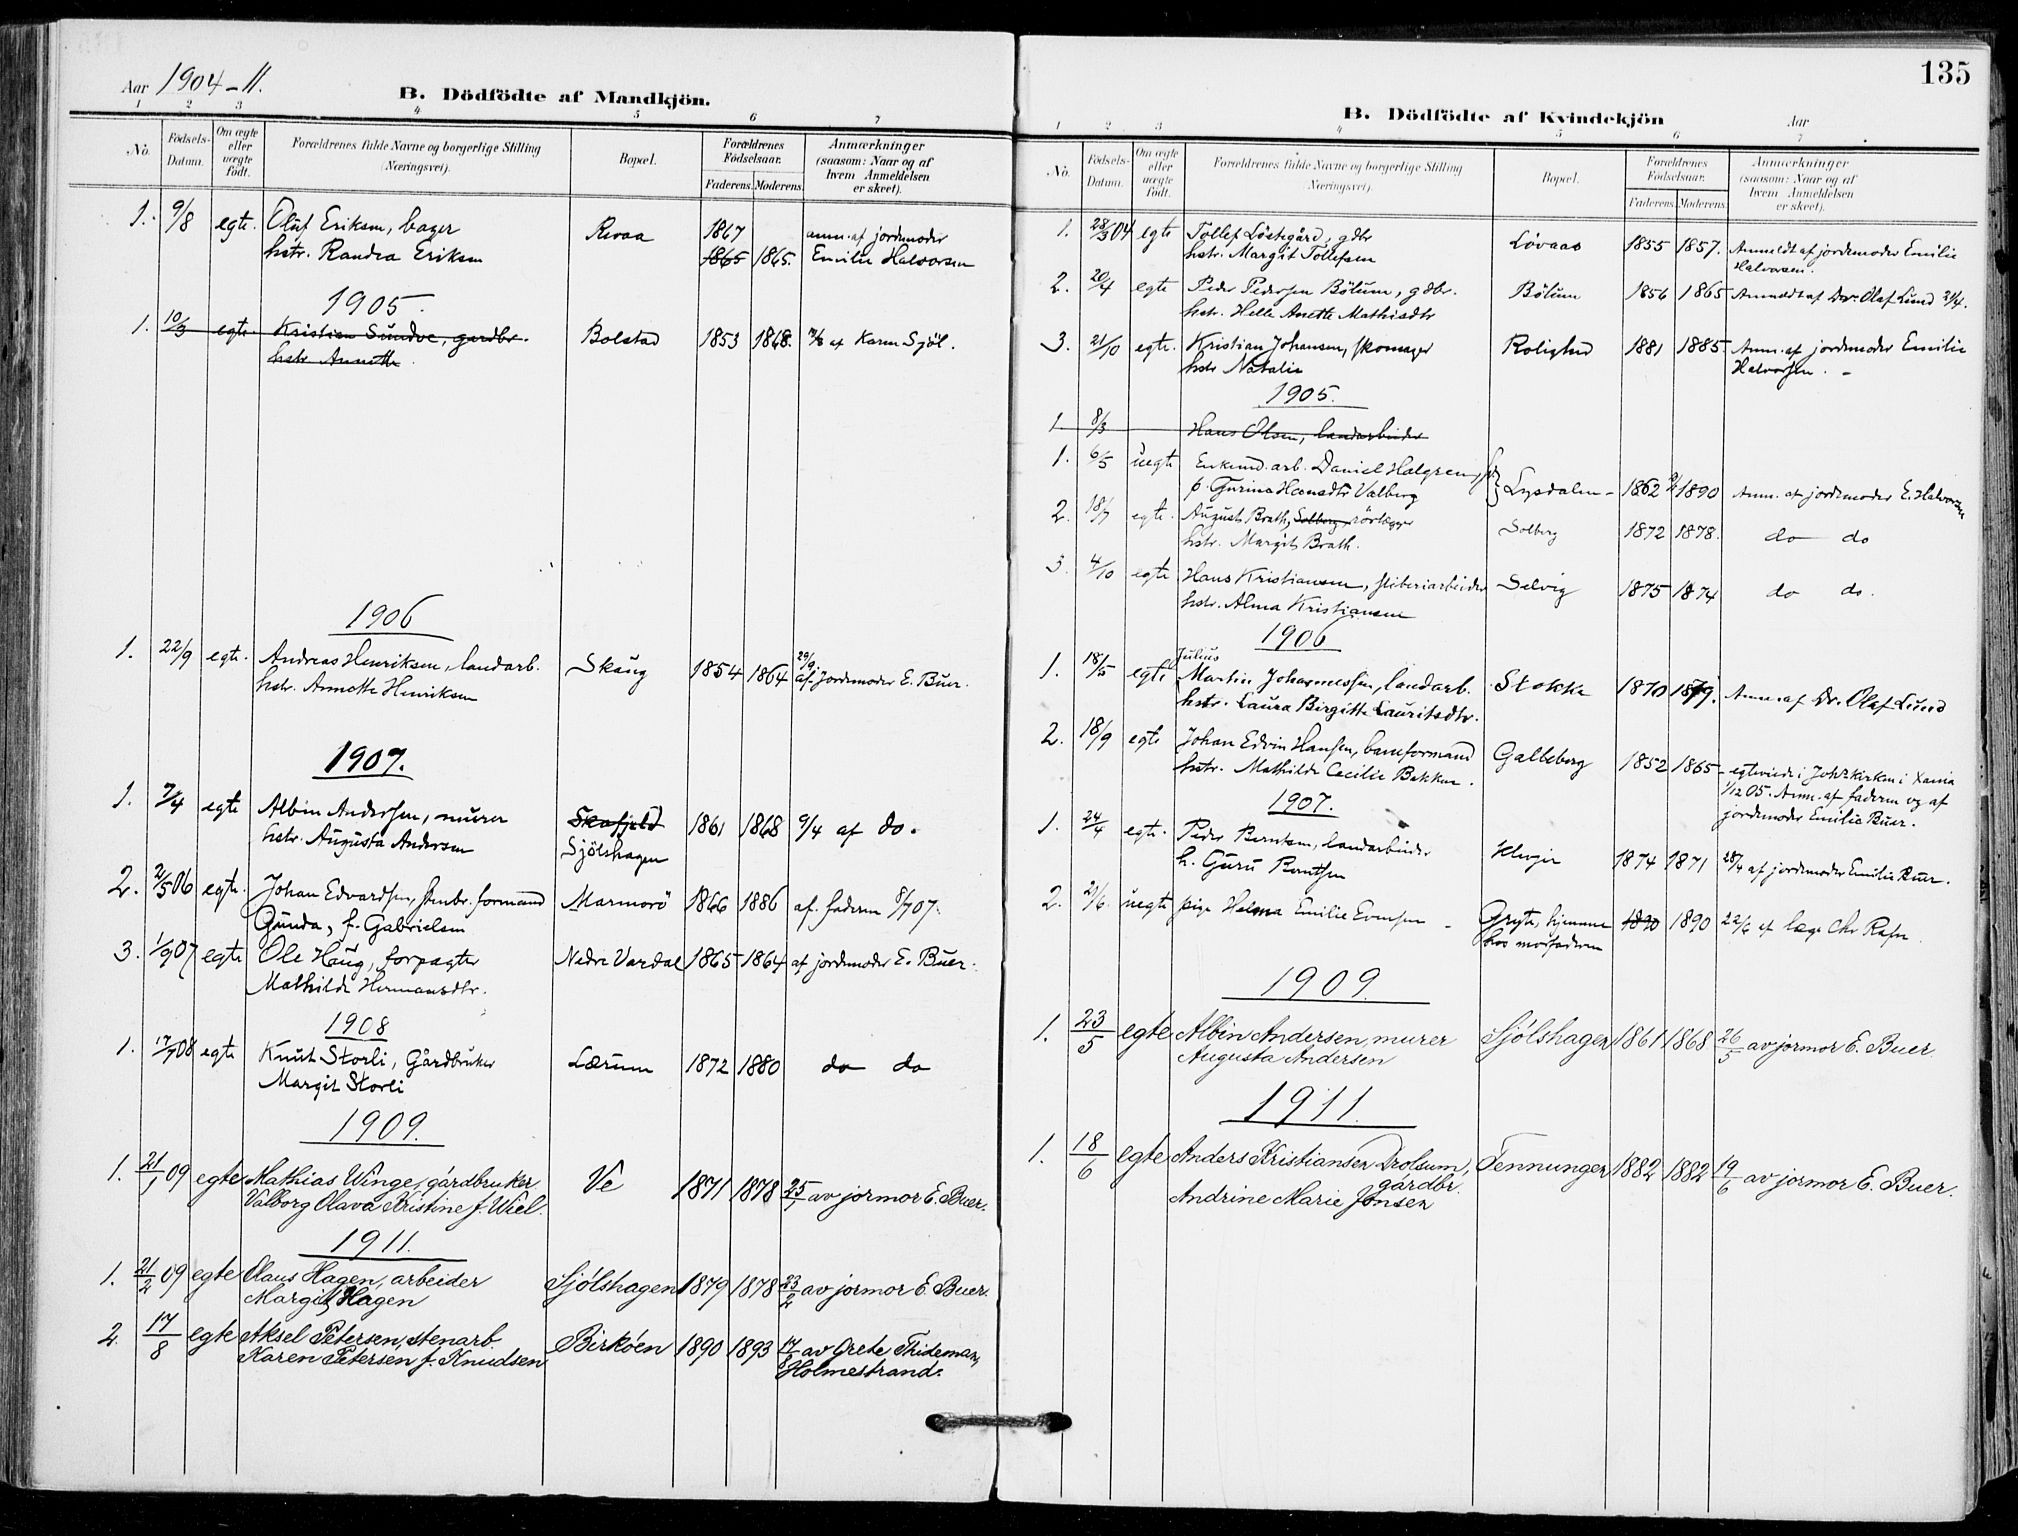 Aar 1904-11.
B. Dödfödte af Mandkjön.
1 2 3 4 5 6 7
No. Födsels-Datum. Om ægte eller uægte födt. Forældrenes fulde Navne og borgerlige Stilling (Næringsvei). Bopæl. Forældrenes Födselsaar. Faderens. Moderens. Anmærkninger (saasom: Naar og af hvem Anmeldelsen er skeet).
1. 9/8 egte. Oluf Eriksen, bager Revaa 1867 anm. af jordemoder
hstr. Randea Eriksen 1865 1865. Emilie Halvorsen
1905.
1. 10/3 egte. Kristian Sundve, gardbr. Bolstad 1853 1868. af Karen Sjöl.
hstr Annette.
1906
1. 22/9 egte. Andreas Henriksen, landarb. Skaug 1854 1864 29/9 af Jordemoder E. Buer.
hstr. Annette Henriksen
1907.
1. 7/4 egte Albin Andersen, murer Skafjeld 1861 1868 9/4 af do.
hstr. Augusta Andersen Sjölshagen
2. 2/5 06 egte. Johan Edvardsen, stenbr. formand Marmorö 1866 1886 af faderen 8/7 07.
Gunda, f. Gabrielsen
3. 1/9 07 egte Ole Haug, forpagter Nedre Vardal 1865 1864 af jordemoder E. Buer.
Mathilde Hermansdtr.
1908
1. 17/7 08 egte Knut Storli, Gårdbruker Lærum 1872 1880 do do
Margit Storli
1909.
1. 21/1 09 egte Mathias Winge, gårdbruker Ve 1871 1878 25/1 av jormor E. Buer.
Valborg Olava Kristine f. Wiel.
1911.
1. 21/2 09 egte Olaus Hagen, arbeider Sjölshagen 1879 1878 23/2 av jormor E. Buer.
Margit Hagen
2. 17/8 egte Aksel Petersen, stenarb. Birköen 1890 1893 17/8 av Grete Thideman,
Karen Petersen f. Knudsen Holmestrand.
135
B. Dödfödte af Kvindekjön
Aar
1 2 3 4 5 6 7
No. Födsels-Datum. Om ægte eller uægte födt. Forældrenes fulde Navne og borgerlige Stilling (Næringsvei). Bopæl. Forældrenes Födselsaar. Faderens. Moderens. Anmærkninger (saasom: Naar og af hvem Anmeldelsen er skeet).
1. 28/3 04 egte Tollef Löstegård, gdbr Lövaas 1855 1857. Anmeldt af jordemoder Emilie
hstr. Margit Tollefsen Halvorsen.
2. 20/4 egte Peder Pedersen Bölum, gdbr. Bölum 1856 1865 Anmeldt af Dr. Olaf Lund 21/4.
hstr. Helle Anette Mathisdtr
3. 21/10 egte. Kristian Johansen, skomager Rolighed 1881 1885. Anm. af jordemoder Emilie
hstr Natalie Halvorsen.
1905.
1 8/3 Hans Olsen, landarbeider
1. 6/5 uegte Enkemd. arb. Daniel Halgren,
p. Gurina Hansdtr Valberg Lysdalen 1862 1890 Anm. af jordemoder E. Halvorsen
2. 18/7 egte. August Brath, Solberg rörlægger Solberg 1872 1878. do do
hstr. Margit Brath.
3. 4/10 egte Hans Kristiansen, sliberiarbeider Selvig 1875 1874 do do.
hstr. Alma Kristiansen
1906
Julius
1. 18/5 egte Martin Johannessen, landarb. Stokke 1870 1879. Anm. af Dr. Olaf Lund
hstr. Laura Birgitte Lauritsdtr.
2. 18/9 egte Johan Edvin Hansen, baneformand Galleberg 1852 1865 egteviede i Johs kirken i Xania
hstr. Mathilde Cecilie Bakken. 1/12 05. Anm. af faderen og af
jordemoder Emilie Buer.
1907.
1. 24/4 egte. Peder Berntsen, landarbeider 1874 1871 28/4 af jordemoder Emilie Buer.
h. Guru Berntsen
2. 21/6 uegte pige Helma Emilie Evensen Gryte, hjemme 1890 1890 22/6 af læge Chr Rafn
hos morfaderen
1909.
1. 23/5 egte Albin Andersen, murer Sjölshagen 1861 1868 26/5 av jormor E. Buer
Augusta Andersen
1911.
1. 18/6 egte Anders Kristiansen Drolsum, Tennungen 1882 1882 19/6 av jormor E. Buer.
gårdbr.
Andrine Marie Jonsen